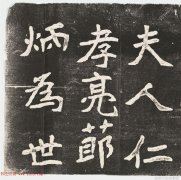 夫人仁
孝亮節
炳為世